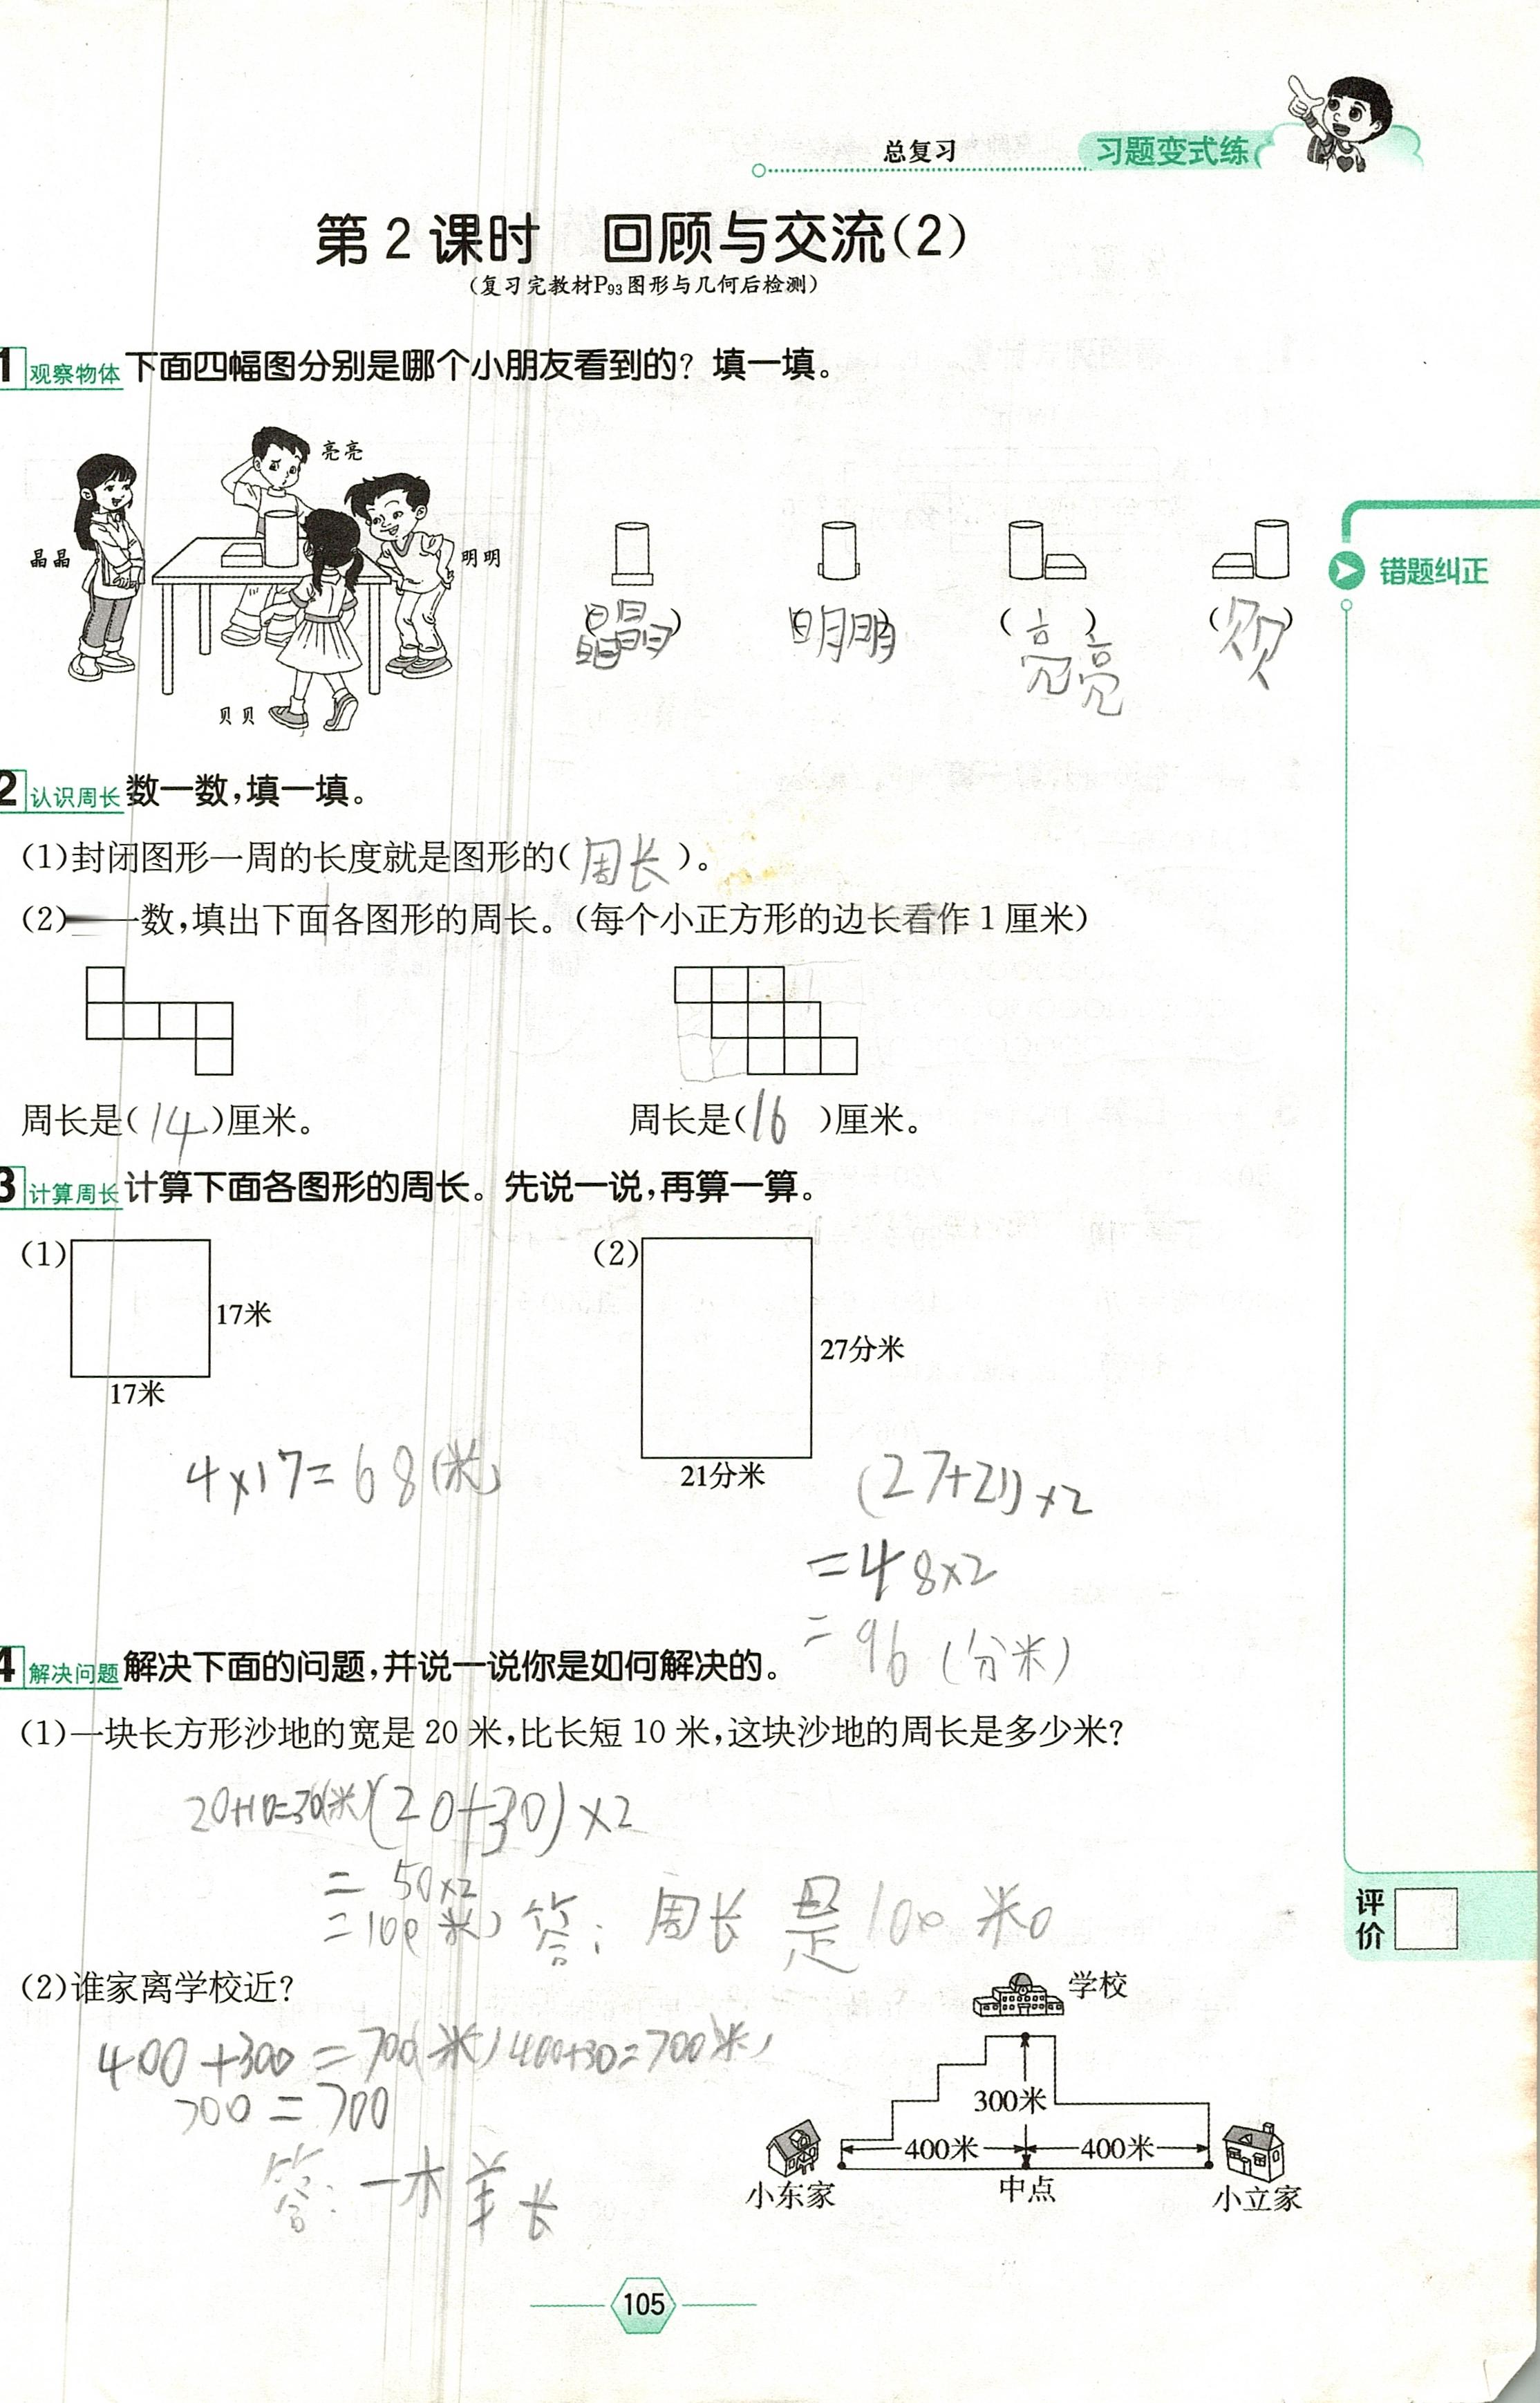 总复习 习题变式练
第2课时 回顾与交流(2)
(复习完教材P93图形与几何后检测)
1 观察物体 下面四幅图分别是哪个小朋友看到的？填一填。
亮亮
晶晶
明明
贝贝
(晶晶) (明明) (亮亮) (贝贝)
错题纠正
2 认识周长 数一数,填一填。
(1)封闭图形一周的长度就是图形的(周长)。
(2) 一数,填出下面各图形的周长。(每个小正方形的边长看作1厘米)
周长是(14)厘米。 周长是(16)厘米。
3 计算周长 计算下面各图形的周长。先说一说,再算一算。
(1) (2)
17米 27分米
17米 21分米
4×17=68(米) (27+21)×2
=48×2
=96(分米)
4 解决问题 解决下面的问题,并说一说你是如何解决的。
(1)一块长方形沙地的宽是20米,比长短10米,这块沙地的周长是多少米?
20+10=30(米)(20+30)×2
=50×2
=100(米) 答:周长是100米。
评价
(2)谁家离学校近?
学校
400+300=700(米)400+30=700(米)
700=700
300米
400米 400米
小东家 中点 小立家
答:一木羊长
105